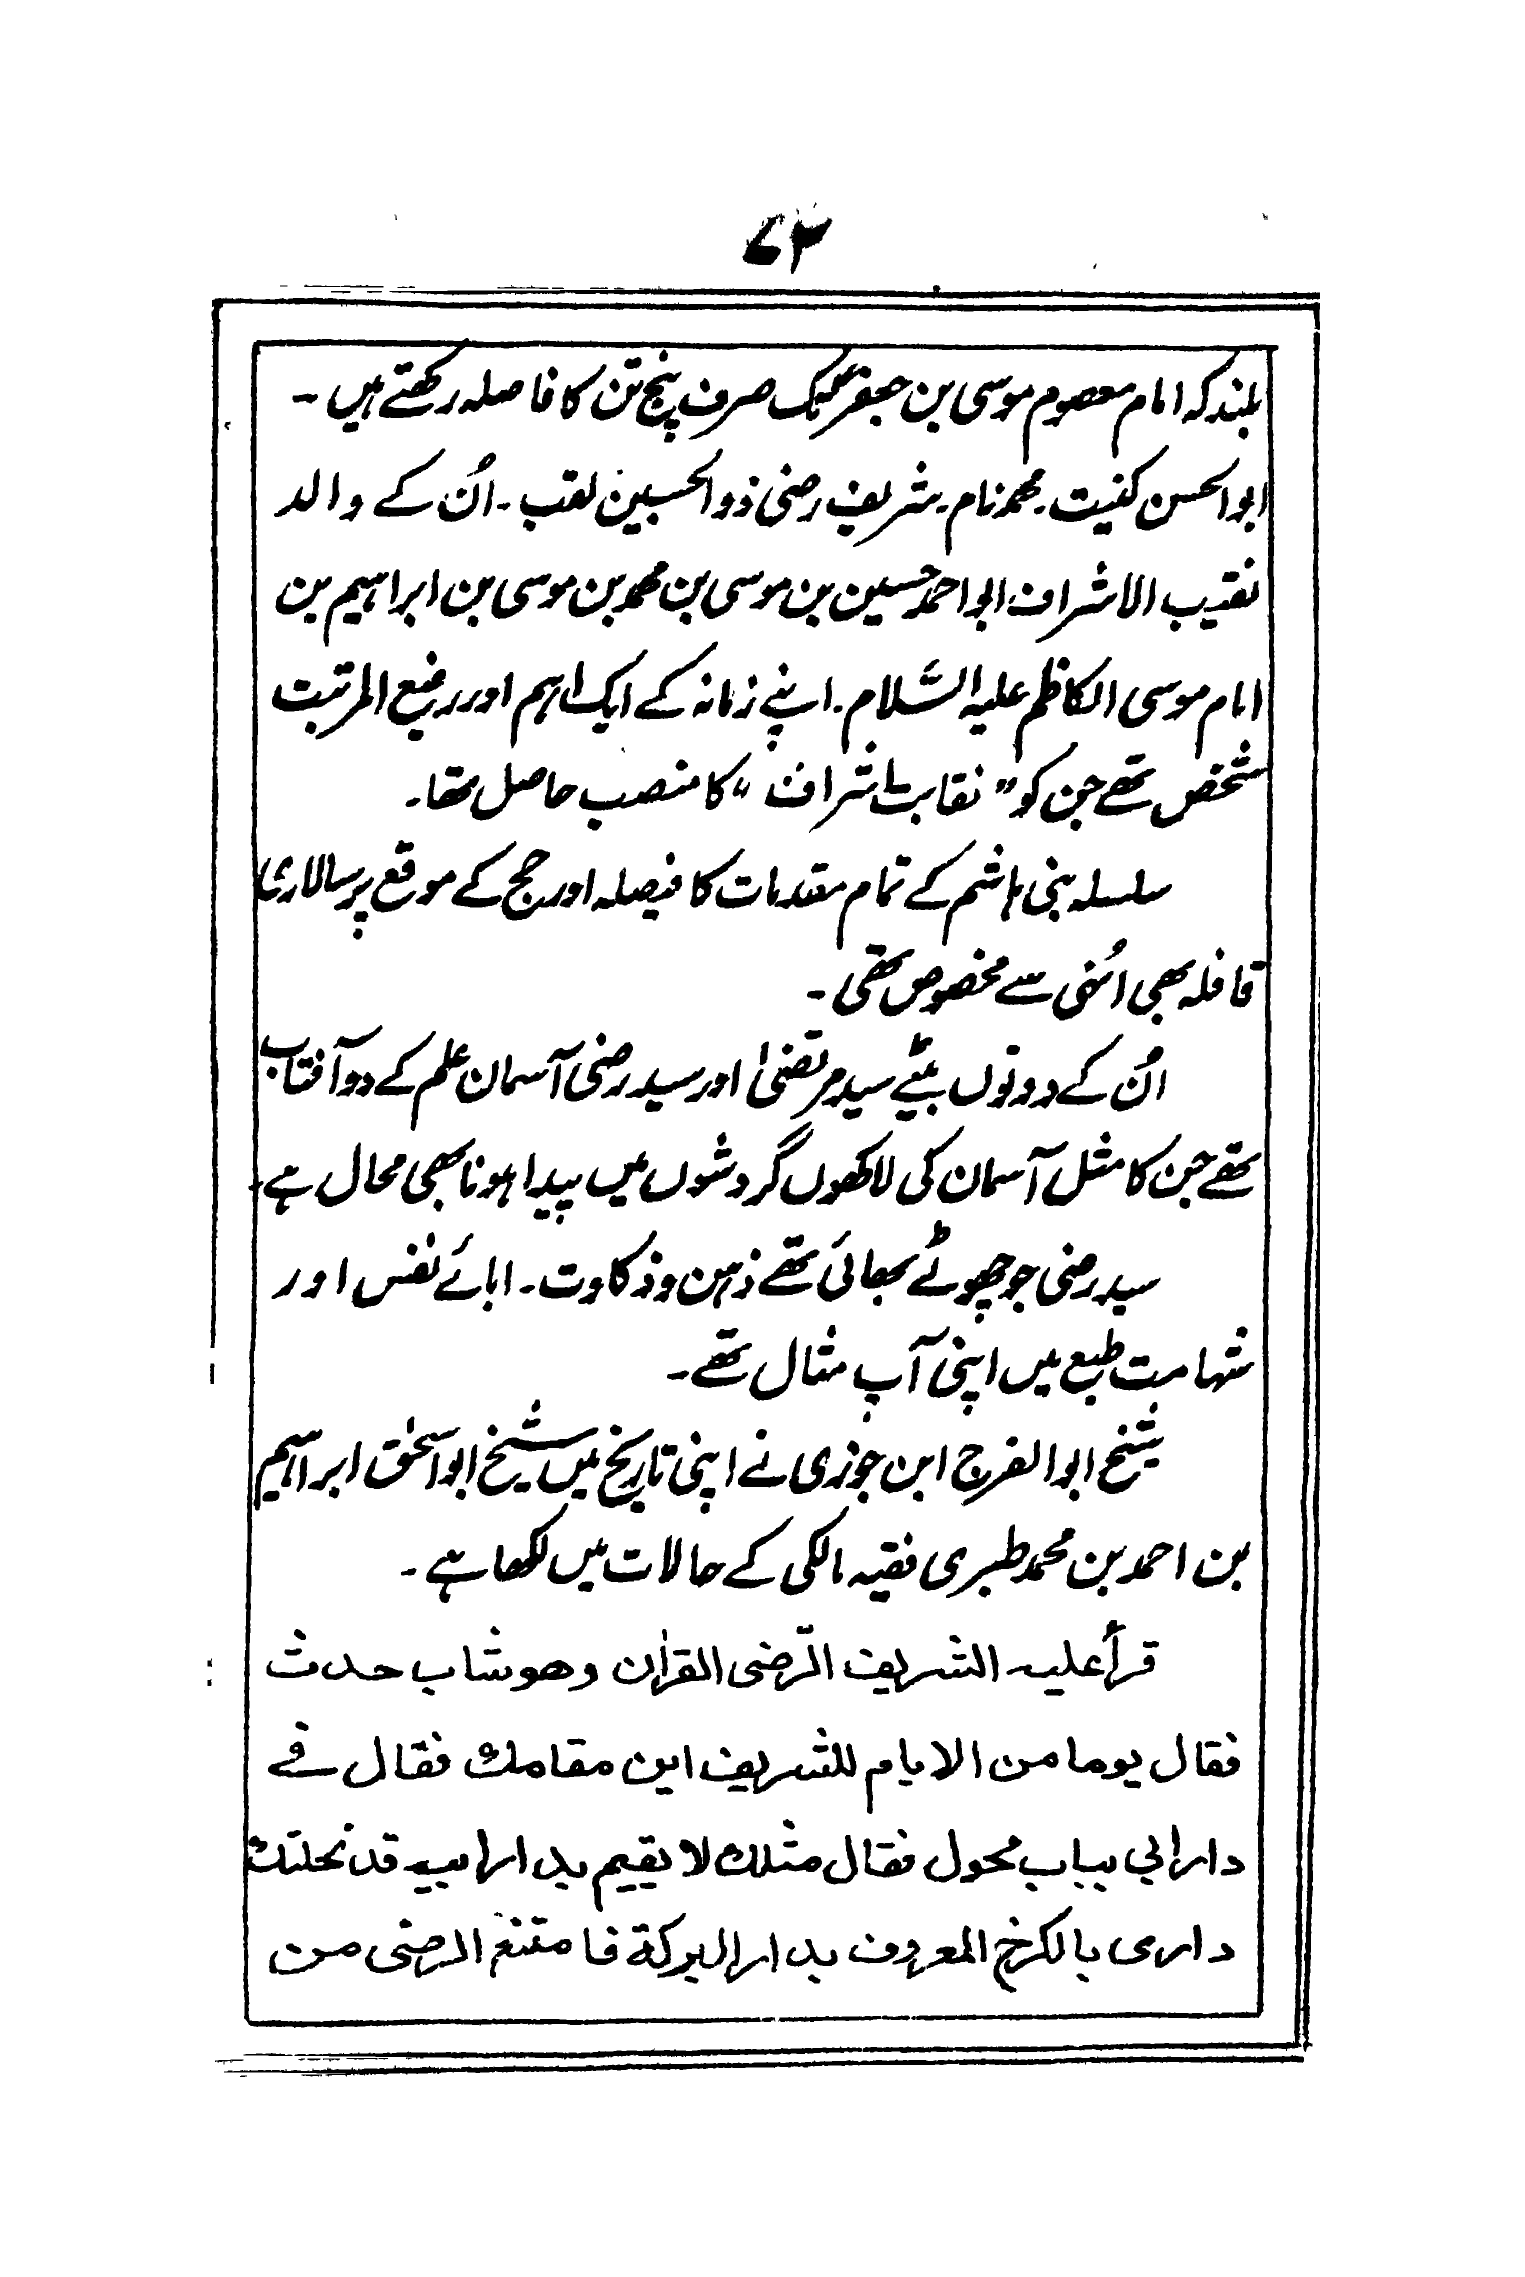 ۷۳
بلند کہ امام معصوم موسی بن جعفرؑ تک صرف پنج تن کا فاصلہ رکھتے ہیں ۔
ابوالحسن کنیت ۔ محمد نام ۔ شریف رضی ذوالحسبین لقب ۔ اُن کے والد
نقیب الاشراف ابو احمد حسین بن موسی بن محمد بن موسی بن ابراہیم بن
امام موسی الکاظم علیہ السَّلام ۔ اپنے زمانہ کے ایک اہم اور رفیع المرتبت
شخص تھے جن کو ” نقابت اشراف “ کا منصب حاصل تھا ۔
سلسلہ بنی ہاشم کے تمام مقدمات کا فیصلہ اور حج کے موقع پر سالاری
قافلہ بھی اُنہی سے مخصوص تھی ۔
اُن کے دونوں بیٹے سید مرتضیٰ اور سید رضی آسمان علم کے دو آفتاب
تھے جن کا مثل آسمان کی لاکھوں گردشوں میں پیدا ہونا بھی محال ہے ۔
سید رضی جو چھوٹے بھائی تھے ذہن و ذکاوت ۔ ابائے نفس اور
شہامت طبع میں اپنی آپ مثال تھے ۔
شیخ ابو الفرج ابن جوزی نے اپنی تاریخ میں شیخ ابو اسحٰق ابراہیم
بن احمد بن محمد طبری فقیہ مالکی کے حالات میں لکھا ہے ۔
قرأ علیہ الشریف الرّضی القراٰن وھو شاب حدث
فقال یوما من الایام للشریف این مقامك فقال فے
دار ابی بباب محول فقال مثلك لا یقیم بدار ابیہ قد نحلتك
داری بالکرخ المعروف بدار البرکة فامتنع الرضی من